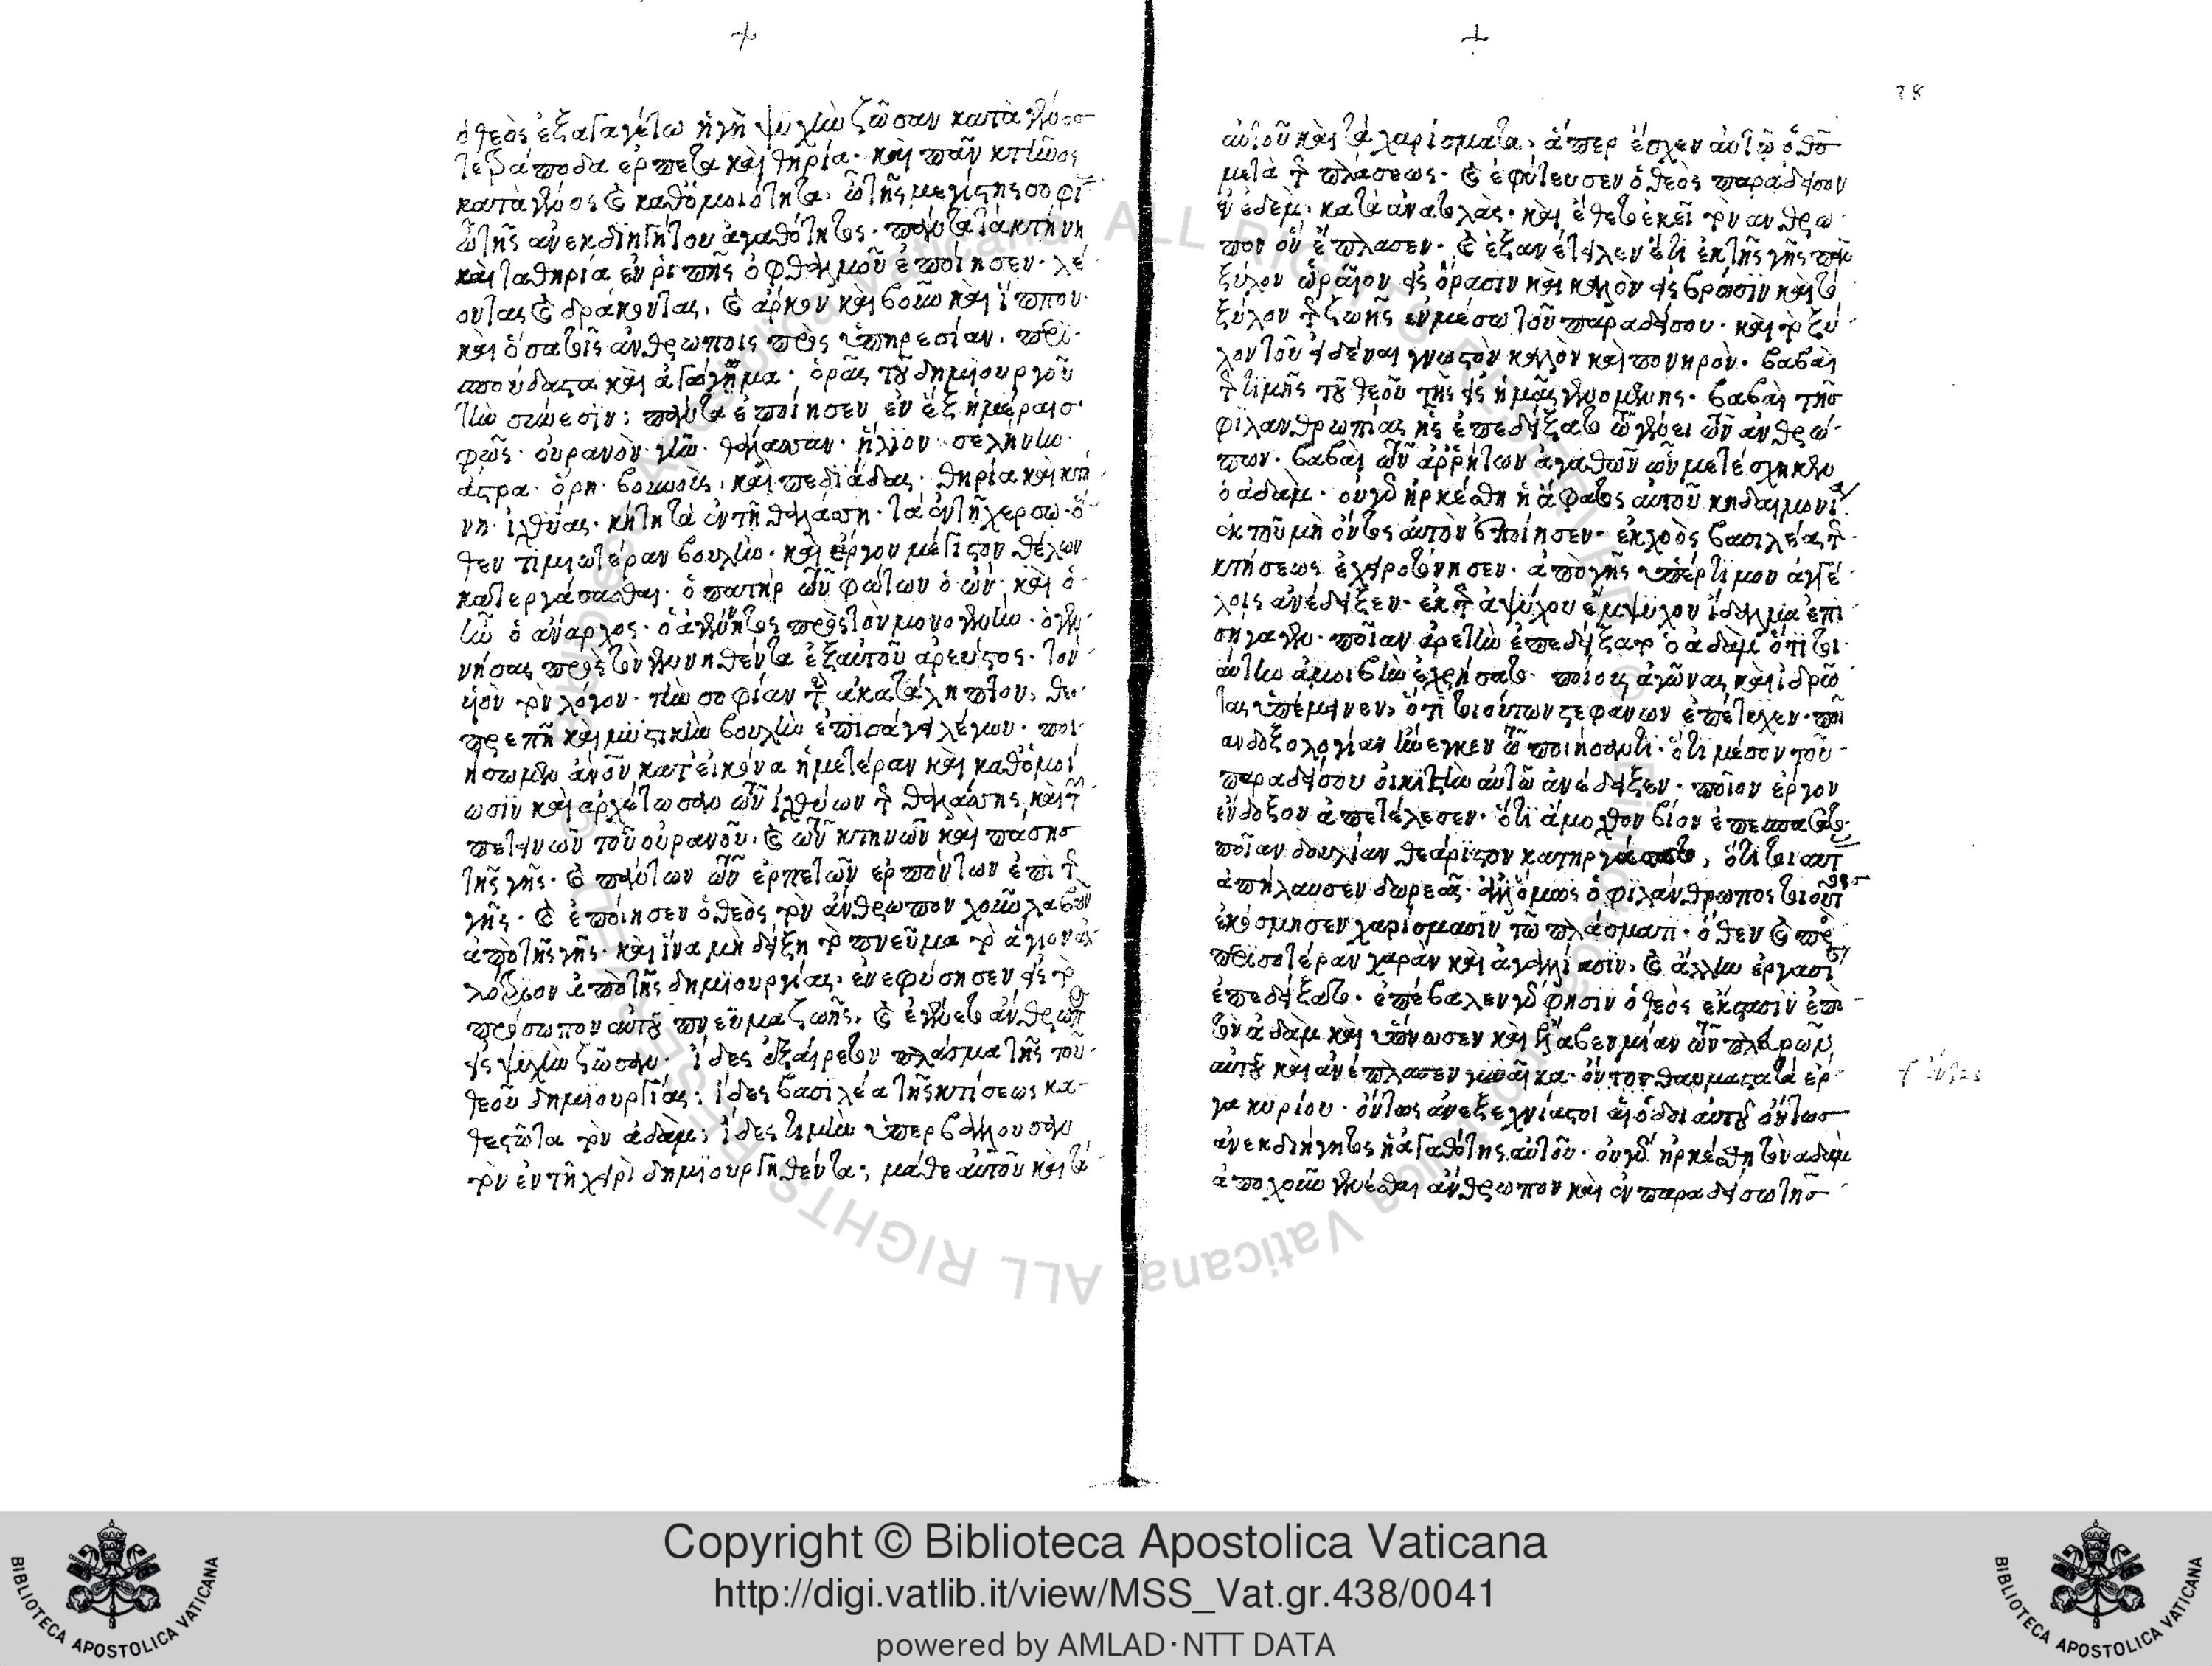 ὁ θεὸς ἐξαγαγέτω ἡ γῆ ψυχὴν ζῶσαν κατὰ γένος
τετράποδα ἑρπετὰ καὶ θηρία· καὶ πᾶν κτῆνος
κατὰ γένος καὶ καθομοιότητα· ὢ τῆς μεγίστης σοφί
ὢ τῆς ἀνεκδιηγήτου ἀγαθότητος· πάντα τὰ κτήνη
καὶ τὰ θηρία ἐν ῥιπῆς ὀφθαλμοῦ ἐποίησεν· λέ
οντας καὶ δράκοντας, καὶ ἄρκον καὶ βοῦν καὶ ἵππον·
καὶ ὅσα τοῖς ἀνθρώποις πρὸς ὑπηρεσίαν,
ὁρᾶς τοῦ δημιουργοῦ
τὴν σύνεσιν; πάντα ἐποίησεν ἐν ἓξ ἡμέραισ
φῶς· οὐρανὸν· γῆν· θάλασσαν· ἥλιον· σελήνην·
ἄστρα· ὄρη· βουνοὺς, καὶ πεδιάδας· θηρία καὶ κτή
νη· ἰχθύας· κήτη τὰ ἐν τῇ θαλάσσῃ· τὰ ἐν τῇ χέρσω· ὅ
θεν τιμιωτέραν βουλὴν· καὶ ἔργον μέγιστον θέλων
κατεργάσασθαι· ὁ πατὴρ τῶν φώτων ὁ ὢν· καὶ ὁ
ἦν ὁ ἄναρχος· ὁ ἀγέννητος πρὸς τὸν μονογενῆν· ὁ γεν
νήσας πρὸς τὸν γεννηθέντα ἐξ αὐτοῦ ἀρεύστος· τὸν
υἱὸν τὸν λόγον· τὴν σοφίαν τοῦ ἀκαταλήπτου, θεο
πρεπῆ καὶ μυστικὴν βουλὴν ἐπισάγει λέγων· ποι
ήσωμεν ἄνον κατ' εἰκόνα ἡμετέραν καὶ καθ' ὁμοί
ωσιν καὶ ἀρχέτωσαν τῶν ἰχθύων τῆς θαλάσσης καὶ τ
πετεινῶν τοῦ οὐρανοῦ· καὶ τῶν κτηνῶν καὶ πάσησ
τῆς γῆς· καὶ πάντων τῶν ἑρπετῶν ἑρπόντων ἐπὶ τῆς
γῆς· καὶ ἐποίησεν ὁ θεὸς τὸν ἄνθρωπον χοῦν λαβὼν
ἀπὸ τῆς γῆς· καὶ ἵνα μὴ δείξη τὸ πνεῦμα τὸ ἅγιον ἀλ
λότριον ἀπὸ τῆς δημιουργίας, ἐνεφύσησεν εἰς τὸ
πρόσωπον αὐτοῦ πνεῦμα ζωῆς, καὶ ἐγένετο ἄνθρωπ
εἰς ψυχὴν ζῶσαν· ἴδες ἐξαίρετον πλάσμα τῆς τοῦ
θεοῦ δημιουργίας; ἴδες βασιλέα τῆς κτίσεως κα
θεστῶτα τὸν ἀδὰμ; ἴδες τιμὴν ὑπερβάλλουσαν
τὸν ἐν τῇ χειρὶ δημιουργηθέντα; μάθε αὐτοῦ καὶ τὰ
αὐτοῦ καὶ τὰ χαρίσματα, ἅπερ ἔσχεν αὐτῷ ὁ θσ
μετὰ τῆς πλάσεως· καὶ ἐφύτευσεν ὁ θεὸς παράδεισον
ἐν ἐδὲμ· κατὰ ἀνατολὰς· καὶ ἔθετο ἐκεῖ τὸν ἄνθρω
πον ὃν ἔπλασεν· καὶ ἐξανέτειλεν ἔτι ἐκ τῆς γῆς πᾶν
ξύλον ὡραῖον εἰς ὅρασιν καὶ καλὸν εἰς βρῶσιν καὶ τὸ
ξύλον τῆς ζωῆς ἐν μέσω τοῦ παραδείσου· καὶ τὸ ξύ
λον τοῦ εἰδέναι γνωστὸν καλὸν καὶ πονηρὸν· βαβαὶ
τῆς τιμῆς τοῦ θεοῦ τῆς εἰς ἡμᾶς γενομένης· βαβαὶ τῆσ
φιλανθρωπίας ἧς ἐπεδείξατο τῶ γένει τῶν ἀνθρώ
πων· βαβαὶ τῶν ἀρρήτων ἀγαθῶν ὧν μετέσχηκεν
ὁ ἀδὰμ· οὐ γὰρ ἠρκέσθη ἡ ἄφατος αὐτοῦ κηδαιμονί
ἐκ τοῦ μὴ ὄντος αὐτὸν ἐποίησεν· ἐκ χοὸς βασιλέα τῆς
κτήσεως ἐχειροτόνησεν· ἀπὸ γῆς ὑπέρτιμον ἀγγέ
λοις ἀνέδειξεν· ἐκ τοῦ ἀψύχου ἔμψυχον ἴδαλμα ἐπι
σήγαγεν· ποῖαν ἀρετὴν ἐπεδείξατο ὁ ἀδὰμ ὅτι τοι
αύτην ἀμοιβὴν ἐχρήσατο· ποίους ἀγῶνας καὶ ἱδρῶ
τας ὑπέμεινεν, ὅτι τοιούτων στεφάνων ἐπέτυχεν· ποί
αν δοξολογίαν ἤνεγκεν τῶ ποιήσαντι· ὅτι μέσον τοῦ
παραδείσου οἰκιστὴν αὐτῶ ἀνέδειξεν· ποῖον ἔργον
ἔνδοξον ἀπετέλεσεν· ὅτι ἄμοχθον βίον
ποῖαν δουλίαν θεάρεστον, ὅτι τοιαύτ
ἀπήλαυσεν δωρεᾶς· ἀλλ' ὅμως ὁ φιλάνθρωπος τοιούτ
ἐκόσμησεν χαρίσμασιν τῶ πλάσματι· ὅθεν καὶ πρ
περισοτέραν χαρὰν καὶ ἀγαλλίασιν, καὶ ἄλλην ἐργασί
ἐπεδείξατο· ἐπέβαλεν γὰρ φησιν ὁ θεὸς ἔκστασιν ἐπὶ
τὸν ἀδὰμ καὶ ὕπνωσεν καὶ ἔλαβεν μίαν τῶν πλευρῶν
αὐτοῦ καὶ ἀνέπλασεν γυναῖκα· ὄντος θαυμαστὰ τὰ ἔρ
γα κυρίου· ὄντως ἀνεξεχνίαστοι αἱ ὁδοὶ αὐτοῦ ὄντωσ
ἀνεκδιήγητος ἡ ἀγαθότης αὐτοῦ· οὐ γὰρ ἠρκέσθη τὸν ἀδὰμ
ἀπὸ χοῦν γενέσθαι ἄνθρωπον καὶ ἐν παραδείσω τῆσ
ALL RIGHTS
Copyright © Biblioteca Apostolica Vaticana
http://digi.vatlib.it/view/MSS_Vat.gr.438/0041
powered by AMLAD·NTT DATA
BIBLIOTECA APOSTOLICA VATICANA
BIBLIOTECA APOSTOLICA VATICANA